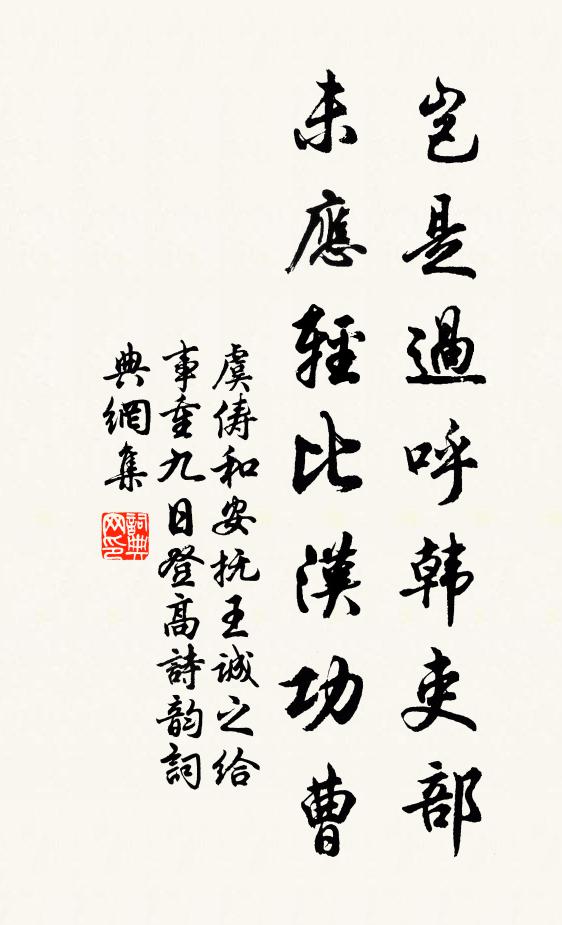 豈是過呼韓吏部
未應輕比漢功曹
虞儔和安抚王誠之给
事重九日登高詩韵詞
典網集
詞典
网印